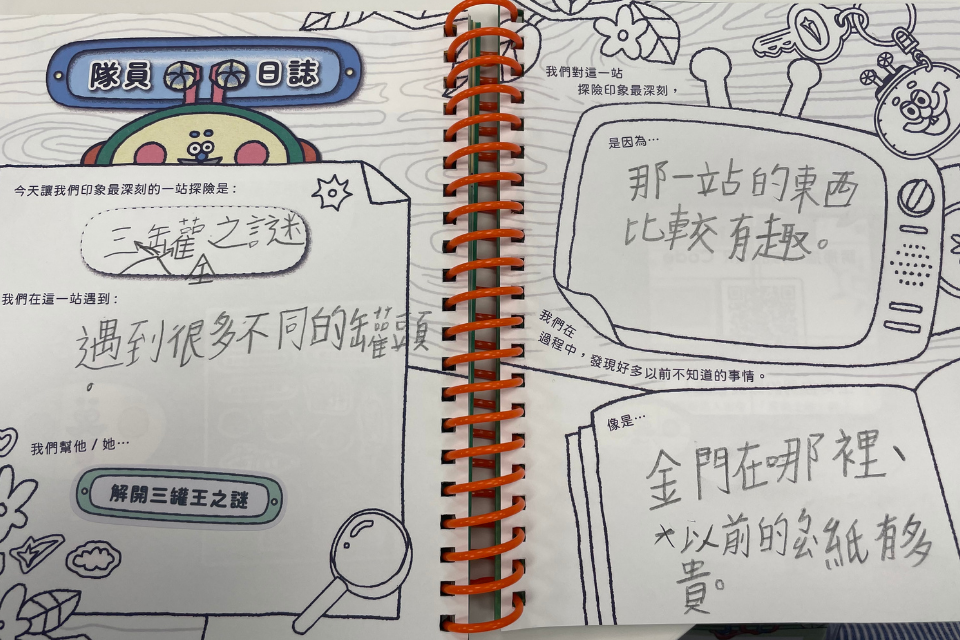 隊員日誌
今天讓我們印象最深刻的一站探險是：
三罐之謎
金
我們在這一站遇到：
遇到很多不同的罐頭
。
我們幫他／她…
解開三罐王之謎
我們對這一站
探險印象最深刻，
是因為…
那一站的東西
比較有趣。
我們在
過程中，發現好多以前不知道的事情。
像是…
金門在哪裡、
以前的紙有多
貴。